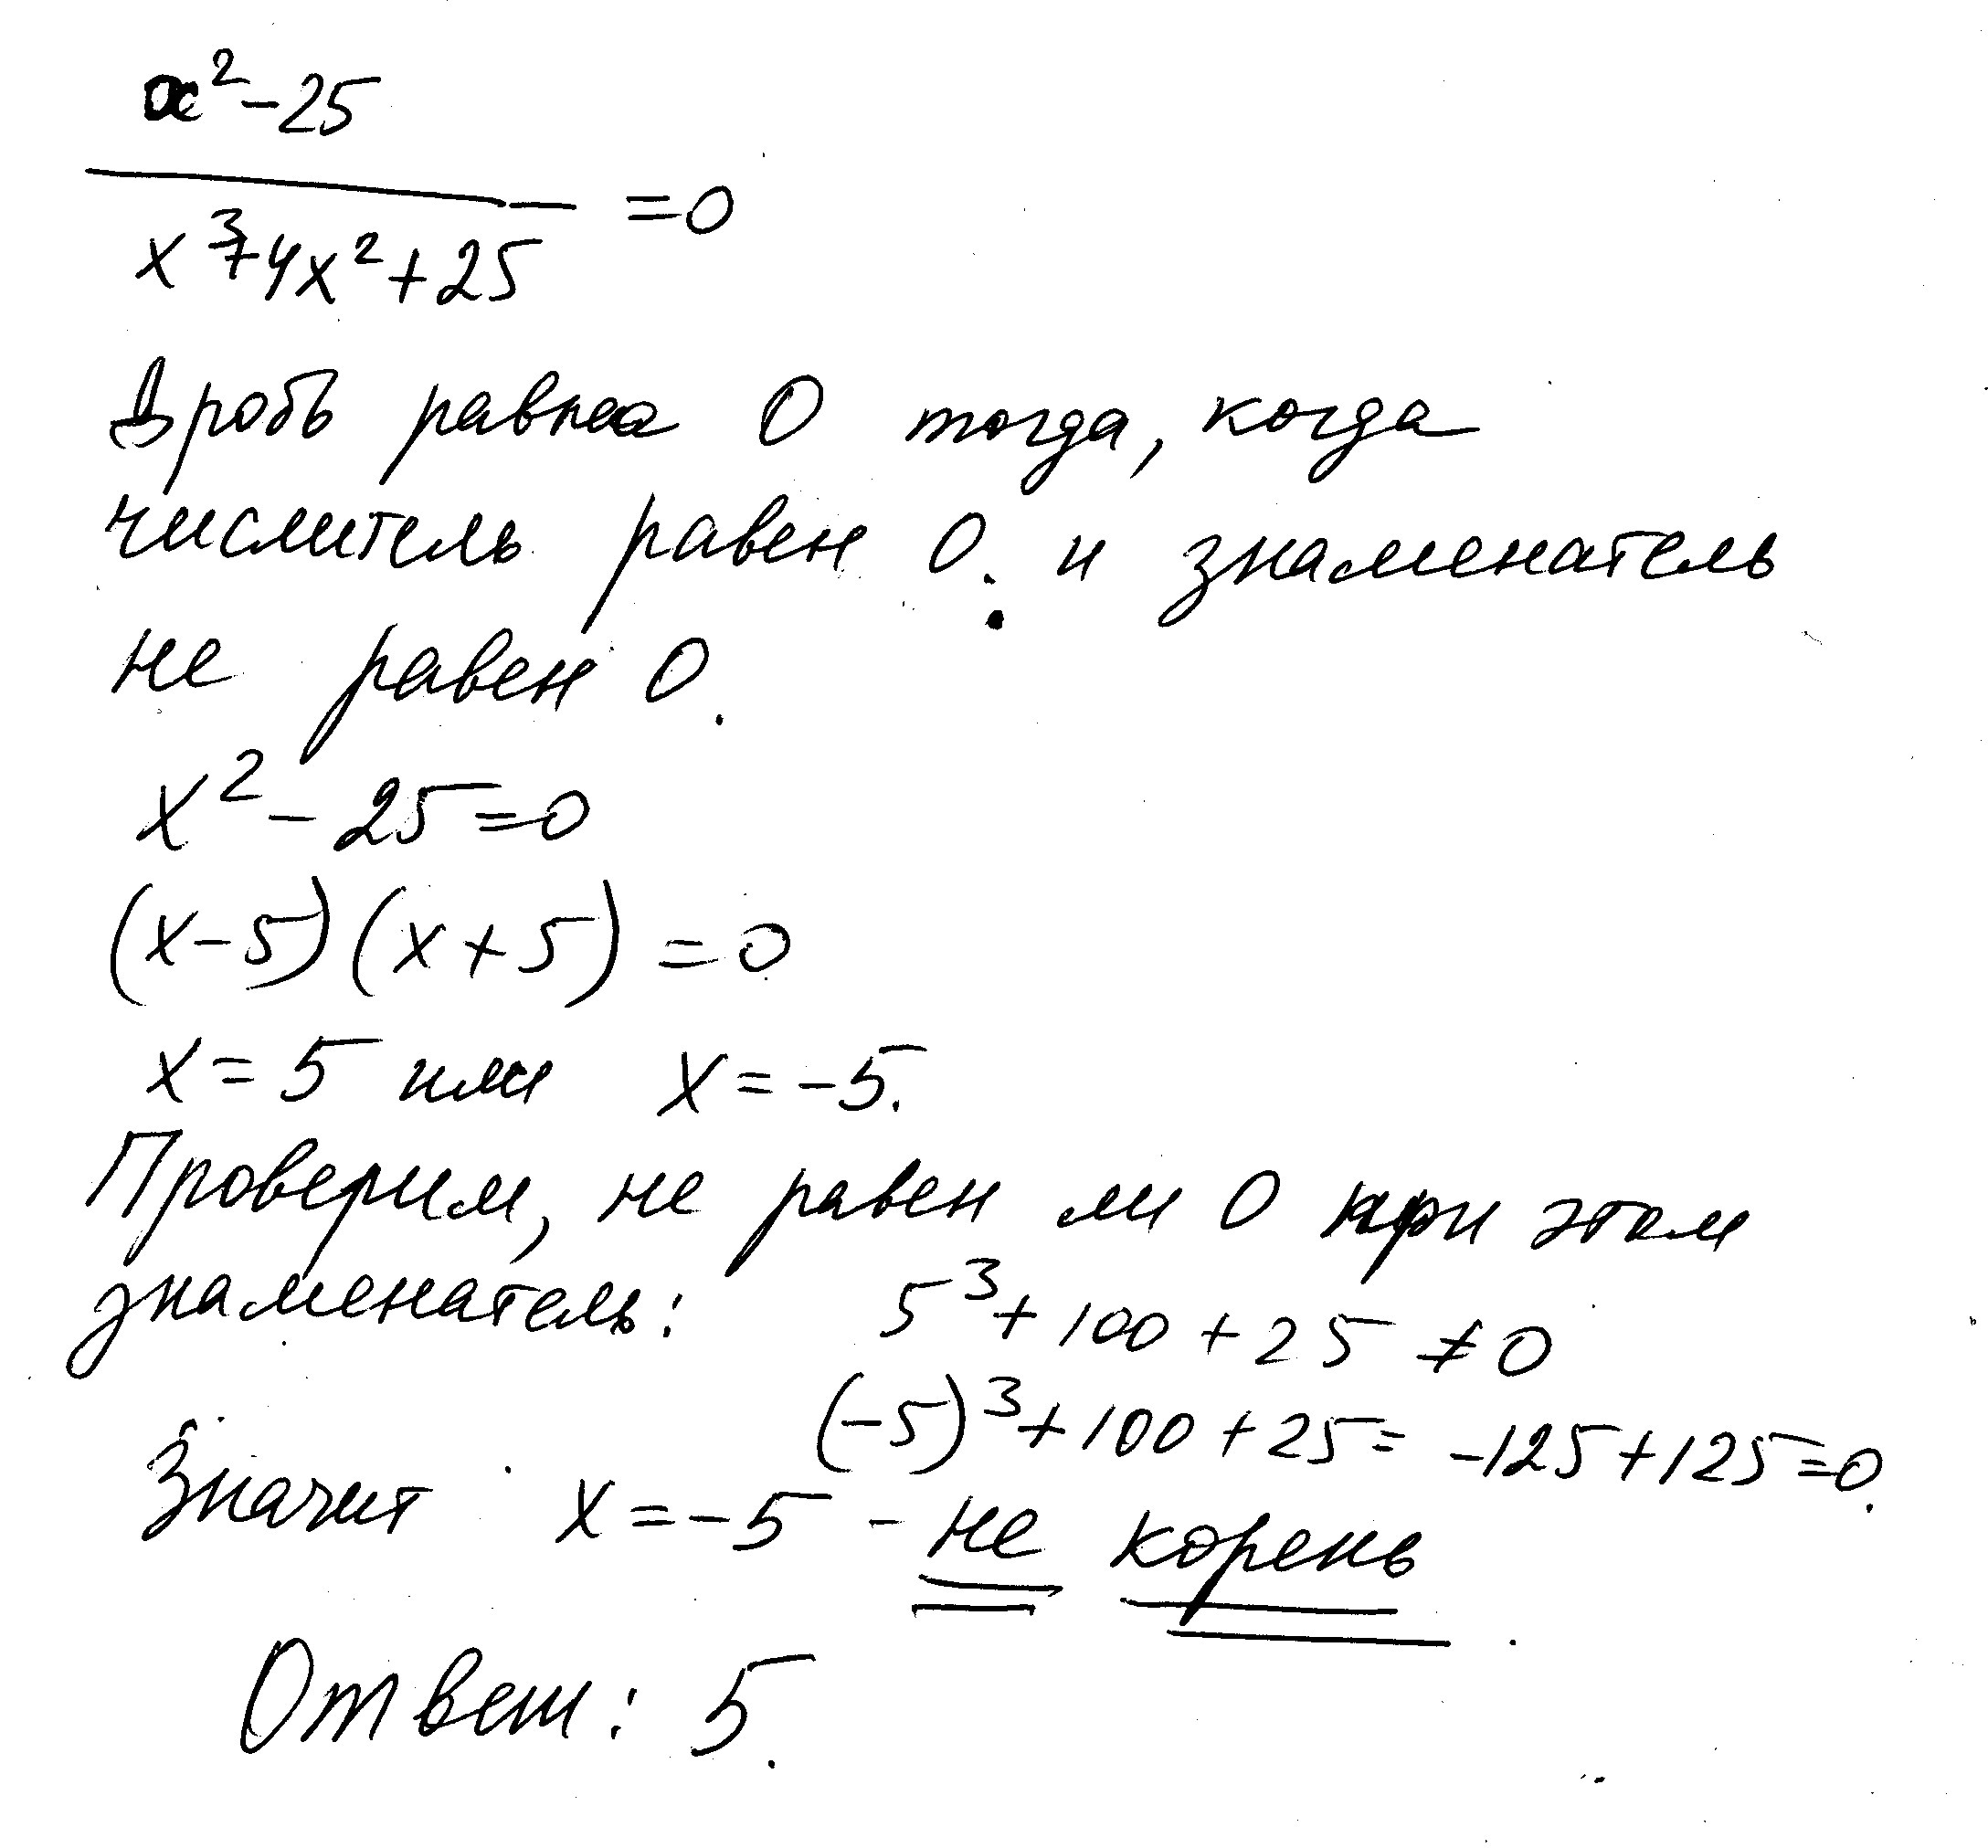 x² - 25
x³ + 4x² + 25 = 0
Дробь равна 0 тогда, когда
числитель равен 0. и знаменатель
не равен 0.
x² - 25 = 0
(x - 5) (x + 5) = 0
x = 5 или x = -5.
Проверим, не равен ли 0 при этом
знаменатель: 5³ + 100 + 25 ≠ 0
(-5)³ + 100 + 25 = -125 + 125 = 0.
Значит x = -5 - не корень.
Ответ: 5.